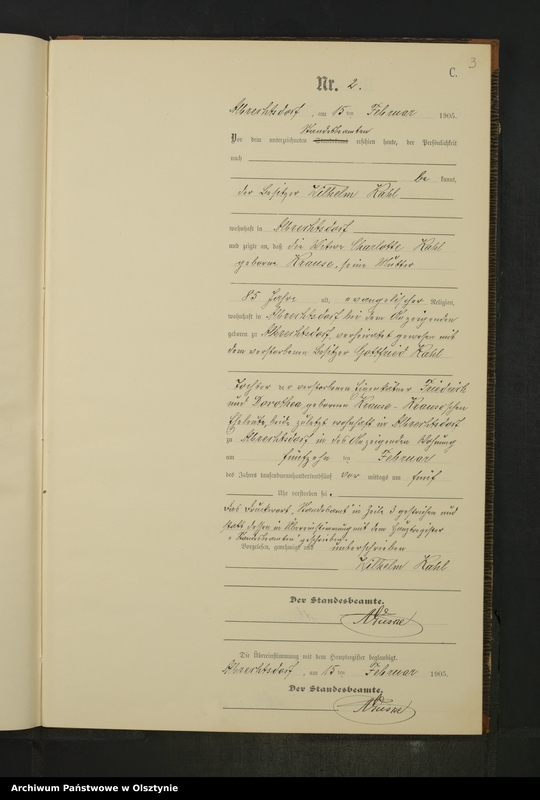 3
C.
Nr. 2.
Albrechtsdorf, am 15ten Februar 1905.
Standesbeamten
Vor dem unterzeichneten Standesamt erschien heute, der Persönlichkeit
nach
be kannt,
der Besitzer Wilhelm Kahl
wohnhaft in Albrechtsdorf
und zeigte an, daß die Witwe Charlotte Kahl
geborene Krause, seine Mutter
85 Jahre alt, evangelischer Religion,
wohnhaft in Albrechtsdorf bei dem Anzeigenden
geboren zu Albrechtsdorf, verheiratet gewesen mit
dem verstorbenen Besitzer Gottfried Kahl
Tochter der verstorbenen Eigenkätner Friedrich
und Dorothea, geborene Krause - Krause'schen
Eheleute, beide zuletzt wohnhaft in Albrechtsdorf
zu Albrechtsdorf in des Anzeigenden Wohnung
am fünfzehn ten Februar
des Jahres tausendneunhundertundfünf vor mittags um fünf
Uhr verstorben sei.
Das Druckwort „Standesamt" in Zeile 3 gestrichen und
statt dessen in Übereinstimmung mit dem Hauptregister
„Standesbeamten" geschrieben.
Vorgelesen, genehmigt und unterschrieben
Wilhelm Kahl
Der Standesbeamte.
Die Übereinstimmung mit dem Hauptregister beglaubigt.
Albrechtsdorf, am 15ten Februar 1905.
Der Standesbeamte.
Archiwum Państwowe w Olsztynie